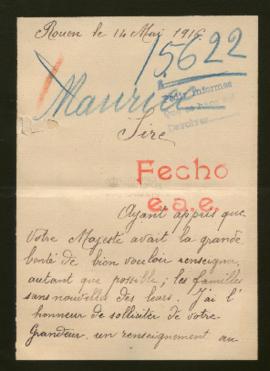 Rouen le 14 Mai 1916
15622
Maurice
Pedir informes
Devolver
Sire
Fecho
e.a.e.
Ayant appris que
Votre Majesté avait la grande
bonté de bien vouloir renseigner,
autant que possible; les familles
sans nouvelle des leurs. J'ai l'
honneur de solliciter de votre
Grandeur un renseignement au